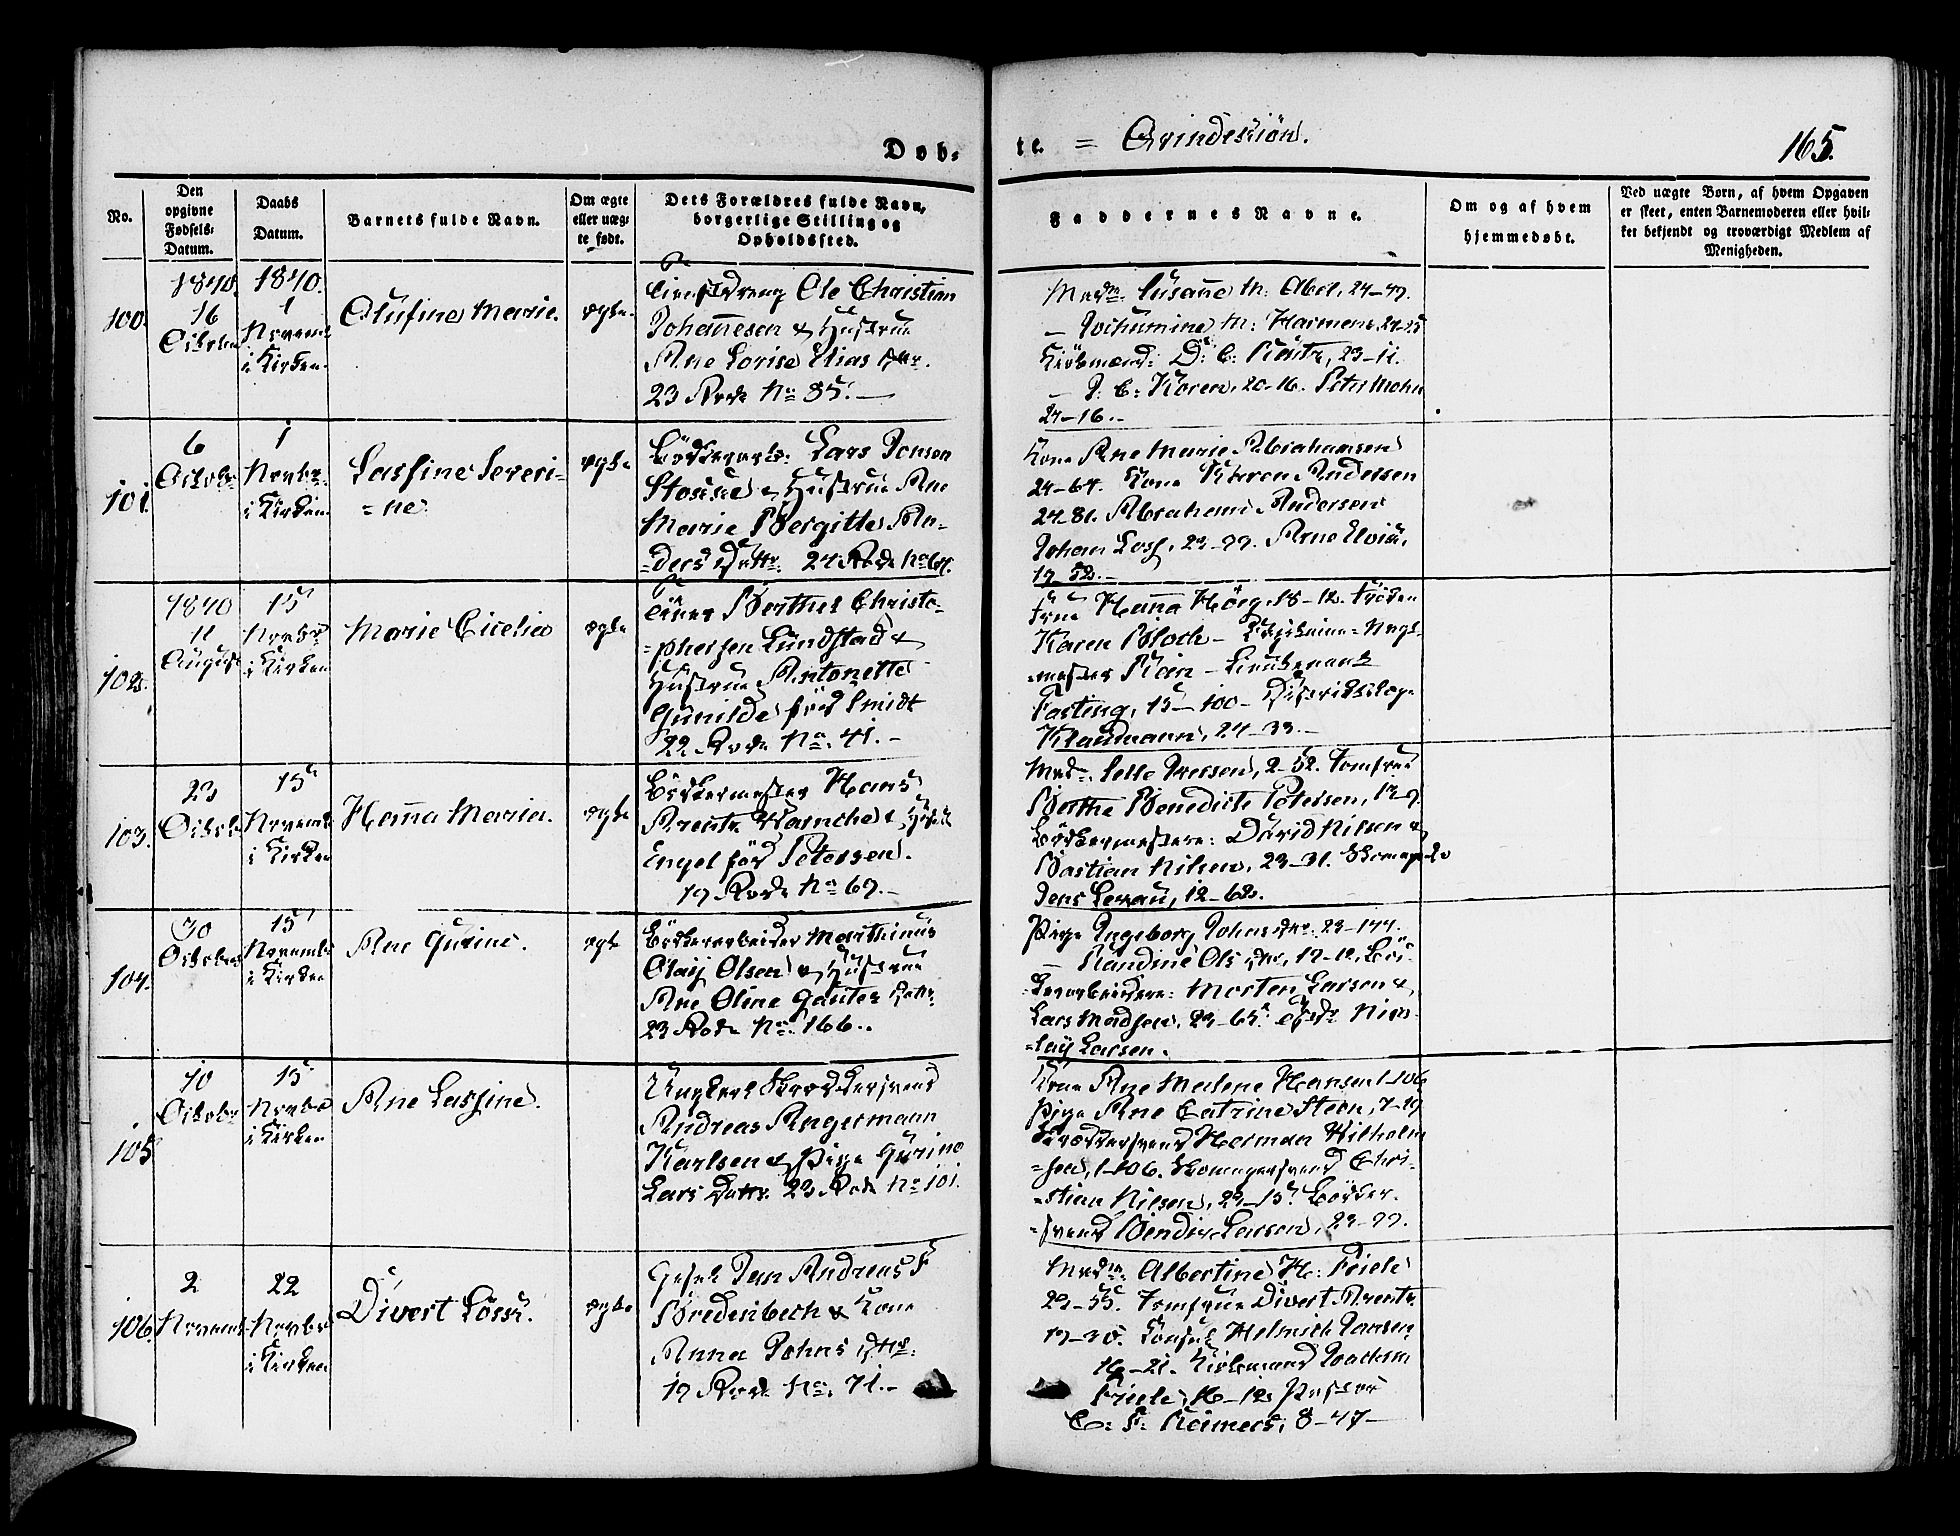 Døb-
te. = Qvindekiön.
165.
No.
Den opgivne Fødsels-Datum.
Daabs Datum.
Barnets fulde Navn.
Om ægte eller uæg-te født.
Dets Forældres fulde Navn, borgerlige Stilling og Opholdssted.
Faddernes Navne.
Om og af hvem hjemmedøbt.
Ved uægte Børn, af hvem Opgaven er skeet, enten Barnemoderen eller hvil-ket bekjendt og troværdigt Medlem af Menigheden.
100.
1840.
16
Octobr
1840.
1
Novemb
i Kirken
Olufine Marie.
ægte.
Ole Christian
Johannesen & Hustrue
Ane Lovise Elias Dtr.
23 Rode No 85.
Madm. Susanne M: Abel, 24-47.
M: Harmens 24-25
Kiöbmænd: D: C: 23-11.
J: C: Koren, 20-16. Peter Mohn
24-16.
101.
6
Octobr
1
Novbr
i Kirken
Lassine Severi-
=ne
ægte
Bödkerarb: Lars Jonsen
& Hustrue Ane
Marie Bergitte An-
=ders Dattr. 24 Rode No 64.
Kone Ane Marie Abrahamsen
24-64. Kone Karen Andersen
24-81. Abraham Andersen
Johan 23-99. Arne
17-52.
102.
1840
11
August
15
Novbr
i Kirken
Marie Cicelia
ægte
Berthel Christo-
=phersen Lundstad &
Hustrue Antonette
Gunilde föd Smidt
22 Rode No. 41.
Frue Hanna Höeg, 18-12. Fröken
Karen Bloch -
=mester - Lieutenant
Fasting, 15-100 - Districtslæge
24-33.
103.
23
Octobr
15
Novemb
i Kirken
Hanna Maria.
ægte
Bödkermester Hans
Arentz &
Engel föd Petersen.
19 Rode No 69.
Mad. Iversen, 2-52. Jomfrue
Berthe Benedicte Petersen,
Bödkermestere: David Nilsen &
Bastian Nilsen, 23-31.
Jens 12-62.
104.
30
October
15
Novembr
i Kirken
Ane Gurine.
ægte
Bödkerarbeider Marthinus
Olaij Olsen & Hustrue
Ane Oline Dattr
23 Rode No. 166.
Pige Ingeborg Johns Dtr. 23-144.
Randine Ols Dtr, 12-12. Böd-
=kerarbeidere: Morten Larsen &
Lars Madsen, 23-65. Nico-
=laij Larsen.
105
10
Octobr
15
Novbr
i Kirken
Ane Lassine.
Ungkarl Skræddersvend
Andreas Angermann
Karlsen & Pige Gurine
Lars Dattr. 23 Rode No 101.
Kone Ane Malene Hansen 1-106
Pige Ane Catrine Steen, 7-19
Skræddersvend Herman Wilhelm
=sen, 1-106. Skomagersvend Chri-
=stian Nilsen, 23-15. Bödker-
=svend Bendix Larsen, 23-99.
106.
2
Novemb
22
Novbr
i Kirken
Divert
ægte
Jan Andreas F
Bredenbech & Kone
Anna Johns Dtr.
19 Rode No. 71.
Madm. Albertine H: Friele
23-55. Jomfrue Divert Arentz
19-30. Consul Helmich Jansen
16-21. Kiöbmand Joachim
Friele, 16-12
C: F: Reimers, 8-47